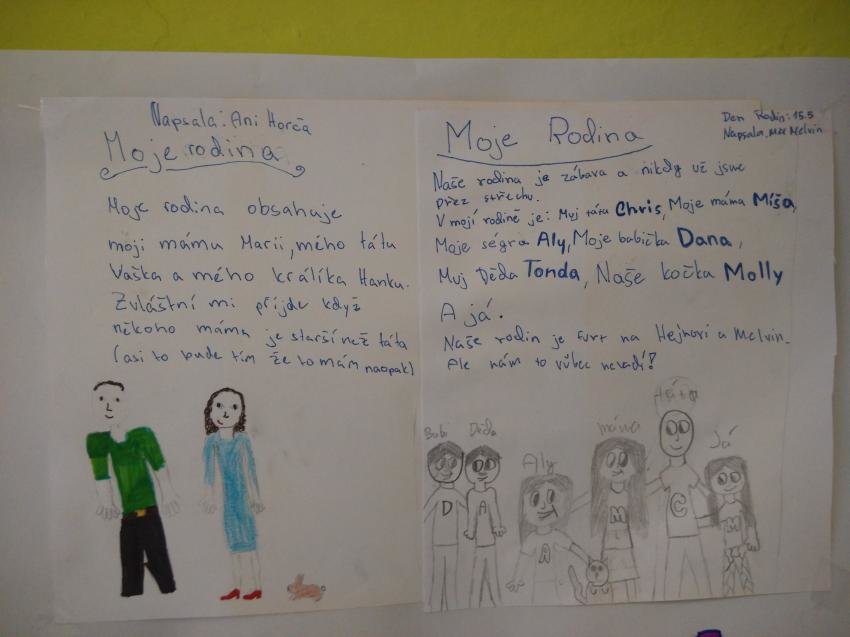 Napsala: Ani Horča
Moje rodina
Moje rodina obsahuje
moji mámu Marii, mého tátu
Vaška a mého králíka Hanku.
Zvláštní mi příjde když
někoho máma je starší než táta
(asi to bude tím že to mám naopak)
Den Rodin: 15.5
Napsala, Melvin
Moje Rodina
Naše rodina je zábava a nikdy už jsme
přez střechu.
V mojí rodině je: Muj táta Chris, Moje máma Míša,
Moje ségra Aly, Moje babička Dana,
Muj Děda Tonda, Naše kočka Molly
A já.
Naše rodin je furt na Hejnovi a Melvin.
Ale nám to vůbec nevadí!
Babi Děda Aly máma táta Já
D A A M C M